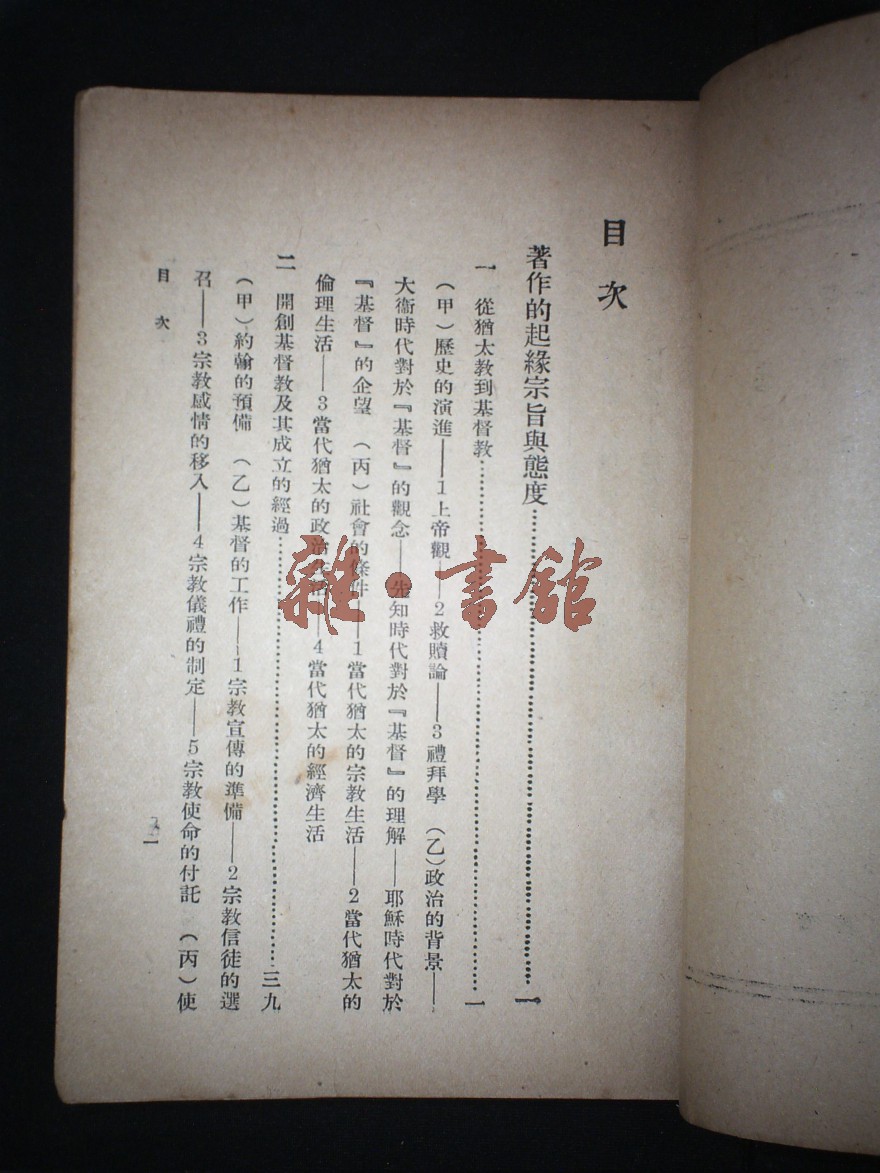 目次
著作的起緣宗旨與態度……一
一 從猶太教到基督教……一
（甲）歷史的演進——1上帝觀——2救贖論——3禮拜學 （乙）政治的背景——
大衞時代對於『基督』的觀念——先知時代對於『基督』的理解——耶穌時代對於
『基督』的企望 （丙）社會的條件——1當代猶太的宗教生活——2當代猶太的
倫理生活——3當代猶太的政治生活——4當代猶太的經濟生活
二 開創基督教及其成立的經過……三九
（甲）約翰的預備 （乙）基督的工作——1宗教宣傳的準備——2宗教信徒的選
召——3宗教感情的移入——4宗教儀禮的制定——5宗教使命的付託 （丙）使
目次
一
雜·書館